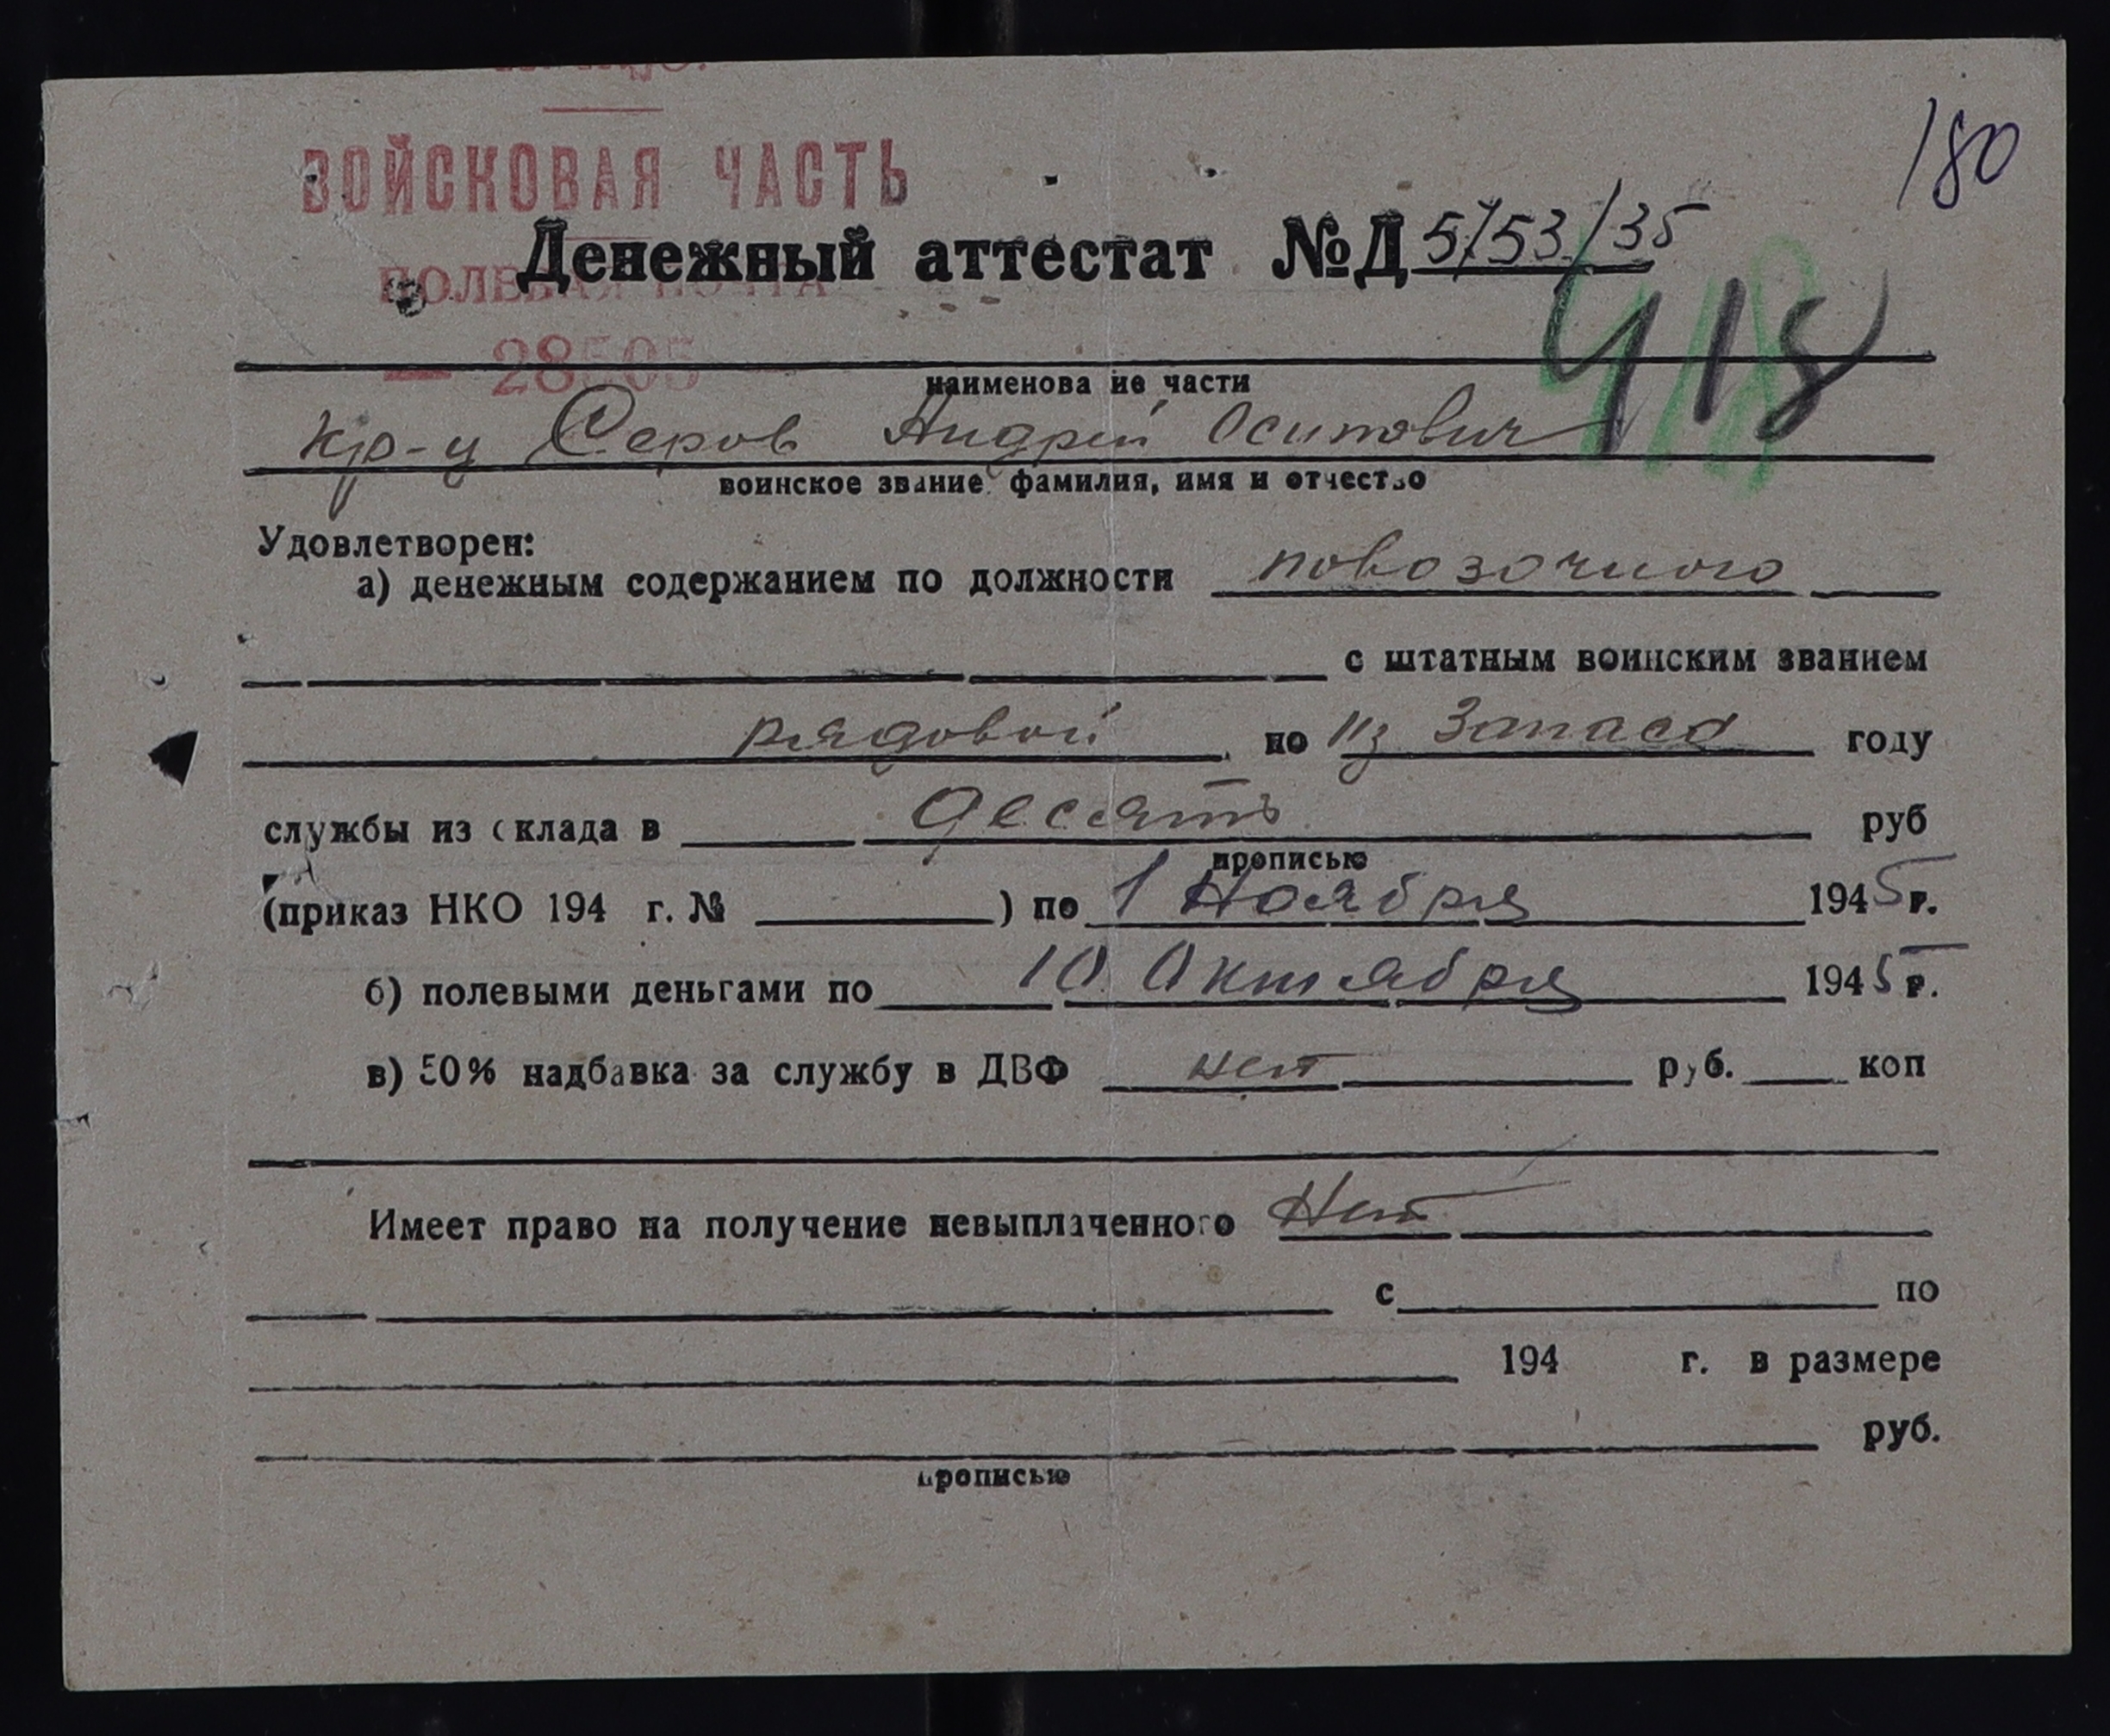 180
ВОЙСКОВАЯ ЧАСТЬ
Денежный аттестат №Д 5/53/35
ПОЛЕВАЯ ПОЧТА
418
— 28505 —
наименова ие части
кр-ц Серов Андрей Осипович
воинское звание, фамилия, имя и отчество
Удовлетворен:
а) денежным содержанием по должности повозочного
с штатным воинским званием
рядовой по из запаса году
службы из склада в десять руб
прописью
(приказ НКО 194 г. № ) по 1 Ноября 1945 г.
б) полевыми деньгами по 10 Октября 1945 г.
в) 50% надбавка за службу в ДВФ нет руб. коп
Имеет право на получение невыплаченного Нет
с по
194 г. в размере
руб.
прописью